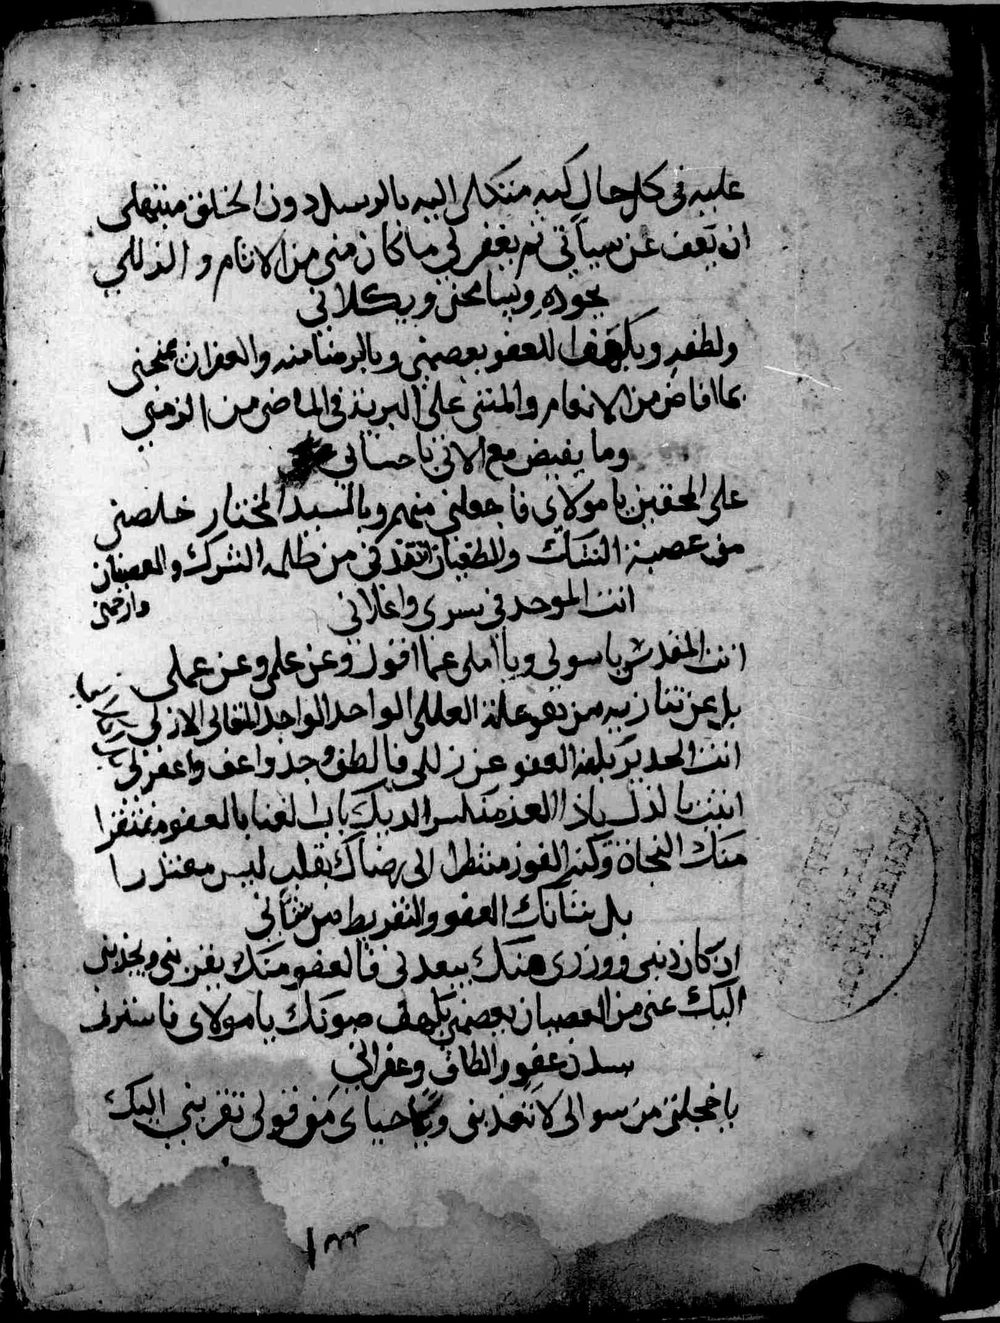 عليه في كل حال كمه متكلي اليه بالرسل دون الخلق مبتهلي
ان يعف عن سياتي ثم يغفر لي ما كان مني من الاثام والذللي
بجوده ويسامحني ويكلاني
ولطفه وبكهف العفو يعصمني وبالرضا منه والغفران يمنحني
بما افاض من الانعام والمنني على البرية في الماضي من الزمني
وما يفيض مع الاتي باحساني
على المحقين يا مولاي فاجعلني منهم وبالسيد المختار خلصني
من عصبة الشك والطغيان انقذني من ظلمة الشرك والعصيان
وارحمني
انت الموحد في سري واعلاني
انت المقدس يا سولي ويا املي عما اقول وعن علمي وعن عملي
بل عن تنازيه من علة العللي الواحد الواجد المتعالي الازلي
انت الجدير بالعفو عن زللي فالطف وجد واعف واغفر لي
اتيت بالذل العذر ملتمس الديك باب الغنا بالعفو مفتقرا
منك النجاة وكنز الفوز منتظرا الى رضاك بقلب ليس معتذرا
بل شانك العفو والتفريط من شاني
ان كان ذنبي ووزري عنك يبعدني فالعفو منك يقربني ويجذبني
اليك عني من العصيان يعصمني بكهف صونك يا مولاي فاسترني
عفو والطاف وغفراني
يا خجلتي من سوالي لا تعذبني ويا حياي من قولي تقربني اليك